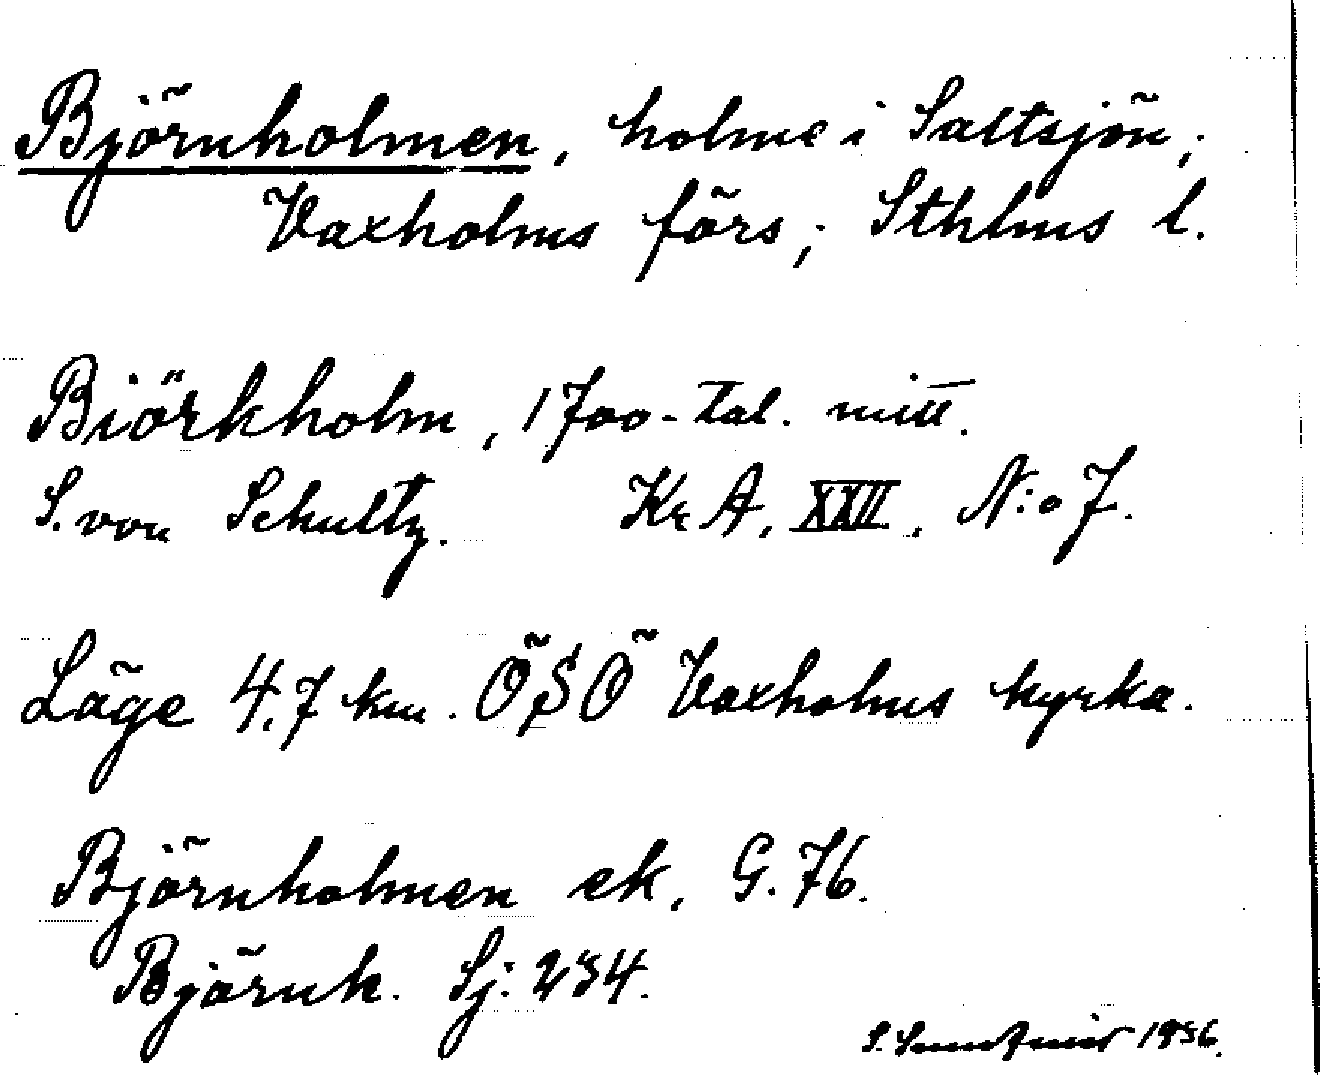 Björnholmen, holme i Saltsjön;
Vaxholms förs; Sthlms l.
Biörkholm, 1700-tal. mitt.
S. von Schultz. Kr A, XXII, N:o 7.
Läge 4,7 km. ÖSÖ Vaxholms kyrka.
Björnholmen ek, G. 76.
Björnh. Sj: 234.
S. 1936.